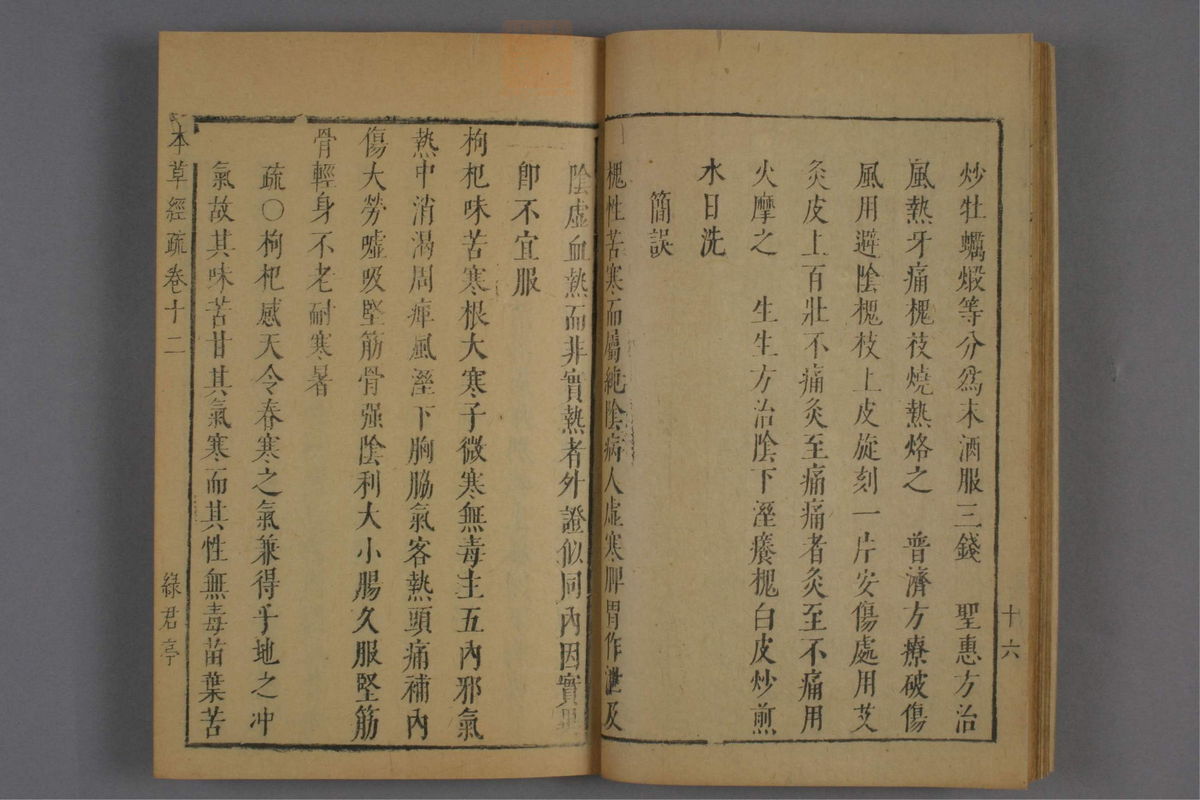 炒牡蠣煅等分爲末酒服三錢　聖惠方治
風熱牙痛槐枝燒熱烙之　普濟方療破傷
風用避陰槐枝上皮旋刻一片安傷處用艾
灸皮上百壯不痛灸至痛痛者灸至不痛用
火摩之　生生方治陰下溼癢槐白皮炒煎
水日洗
簡誤
槐性苦寒而屬純陰病人虛寒脾胃作泄及
陰虛血熱而非實熱者外證似同內因實異
卽不宜服
枸杞味苦寒根大寒子微寒無毒主五內邪氣
熱中消渴周痺風溼下胸脇氣客熱頭痛補內
傷大勞噓吸堅筋骨强陰利大小腸久服堅筋
骨輕身不老耐寒暑
疏〇枸杞感天令春寒之氣兼得乎地之冲
氣故其味苦甘其氣寒而其性無毒苗葉苦
十六
本草經疏卷十二
綠君亭